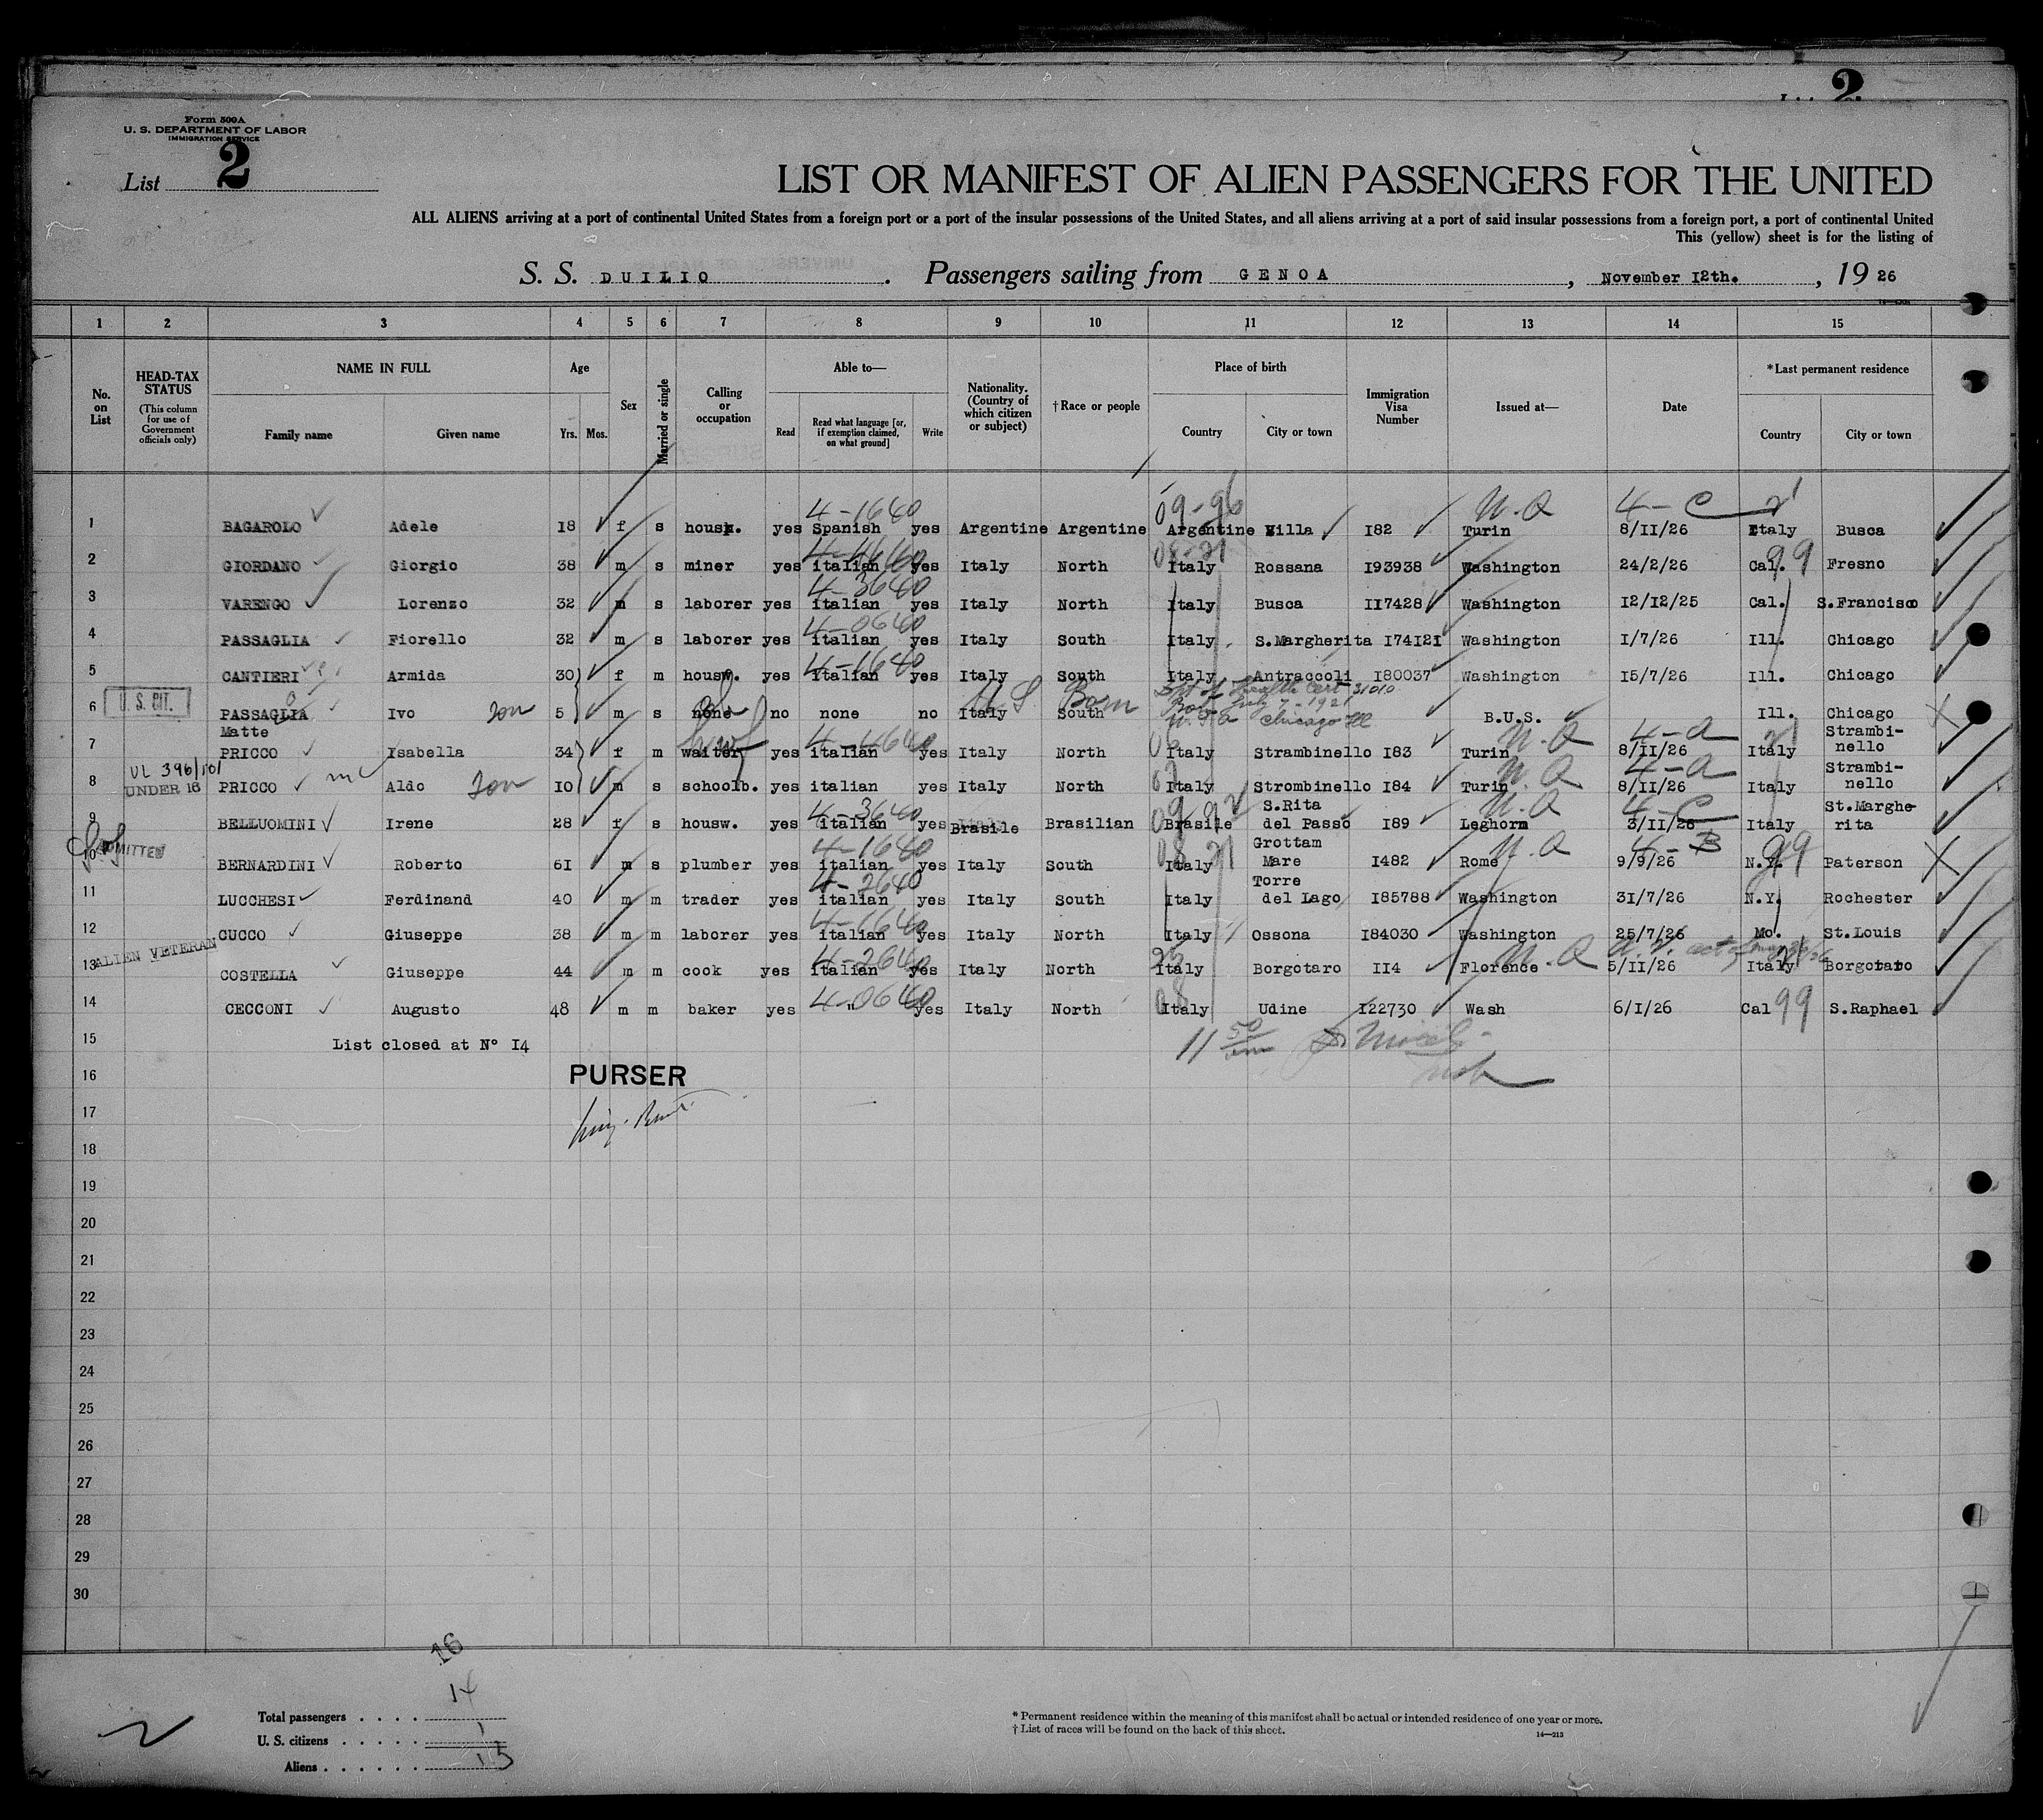 2
Form 500A
U. S. DEPARTMENT OF LABOR
IMMIGRATION SERVICE
List 2
LIST OR MANIFEST OF ALIEN PASSENGERS FOR THE UNITED
ALL ALIENS arriving at a port of continental United States from a foreign port or a port of the insular possessions of the United States, and all aliens arriving at a port of said insular possessions from a foreign port, a port of continental United
This (yellow) sheet is for the listing of
S. S. DUILIO. Passengers sailing from GENOA, November I2th., 19 26
1 2 3 4 5 6 7 8 9 10 11 12 13 14 15
No. on List
HEAD-TAX STATUS (This column for use of Government officials only)
NAME IN FULL
Family name Given name
Age
Yrs. Mos.
Sex
Married or single
Calling or occupation
Able to—
Read Read what language [or, if exemption claimed, on what ground] Write
Nationality. (Country of which citizen or subject)
†Race or people
Place of birth
Country City or town
Immigration Visa Number
Issued at—
Date
*Last permanent residence
Country City or town
4-1640 09-96 N.Q 4-C 21
1 BAGAROLO Adele I8 f s housk. yes Spanish yes Argentine Argentine Argentine Villa I82 Turin 8/II/26 Italy Busca
2 GIORDANO Giorgio 38 m s miner yes italian yes Italy North Italy Rossana I93938 Washington 24/2/26 Cal. 99 Fresno
4-3640
3 VARENGO Lorenzo 32 m s laborer yes italian yes Italy North Italy Busca II7428 Washington I2/I2/25 Cal. S.Francisco
4-0640
4 PASSAGLIA Fiorello 32 m s laborer yes italian yes Italy South Italy S.Margherita I74I2I Washington I/7/26 Ill. Chicago
4-1640
5 CANTIERI Armida 30 f m housw. yes italian yes Italy South Italy Antraccoli I80037 Washington I5/7/26 Ill. Chicago
U.S. Born Dpt of Health Cert 31010
Born July 7-1921
U.S.A Chicago Ill
6 U. S. CIT. PASSAGLIA Ivo son 5 m s none no none no Italy South B.U.S. Ill. Chicago
Matte
7 PRICCO Isabella 34 f m waiter yes italian yes Italy North Italy Strambinello I83 Turin N.Q 4-a 8/II/26 Italy Strambi-
nello
VL 396/101
8 UNDER 16 PRICCO Aldo son IO m s schoolb. yes italian yes Italy North Italy Strombinello I84 Turin N.Q 4-a 8/II/26 Italy Strambi-
nello
4-3640 N.Q 4-C
9 BELLUOMINI Irene 28 f s housw. yes italian yes Brasile Brasilian Brasile S.Rita del Passo I89 Leghorn 3/II/26 Italy St.Marghe-
rita
ADMITTED
4-1640 N.Q 4-B
10 BERNARDINI Roberto 6I m s plumber yes italian yes Italy South Italy Grottam Mare I482 Rome 9/9/26 N.Y. 99 Paterson
4-2640
11 LUCCHESI Ferdinand 40 m m trader yes italian yes Italy South Italy Torre del Lago I85788 Washington 3I/7/26 N.Y. Rochester
4-1640
12 CUCCO Giuseppe 38 m m laborer yes italian yes Italy North Italy Ossona I84030 Washington 25/7/26 Mo. St.Louis
ALIEN VETERAN
4-2640 N.Q
13 COSTELLA Giuseppe 44 m m cook yes italian yes Italy North Italy Borgotaro II4 Florence 5/II/26 Italy Borgotaro
4-0640
14 CECCONI Augusto 48 m m baker yes " yes Italy North Italy Udine I22730 Wash 6/I/26 Cal 99 S.Raphael
15 List closed at N° I4
11 50 am
16 PURSER
17
18
19
20
21
22
23
24
25
26
27
28
29
30
16
14
Total passengers
U. S. citizens 1
Aliens 13
* Permanent residence within the meaning of this manifest shall be actual or intended residence of one year or more.
† List of races will be found on the back of this sheet.
14—213